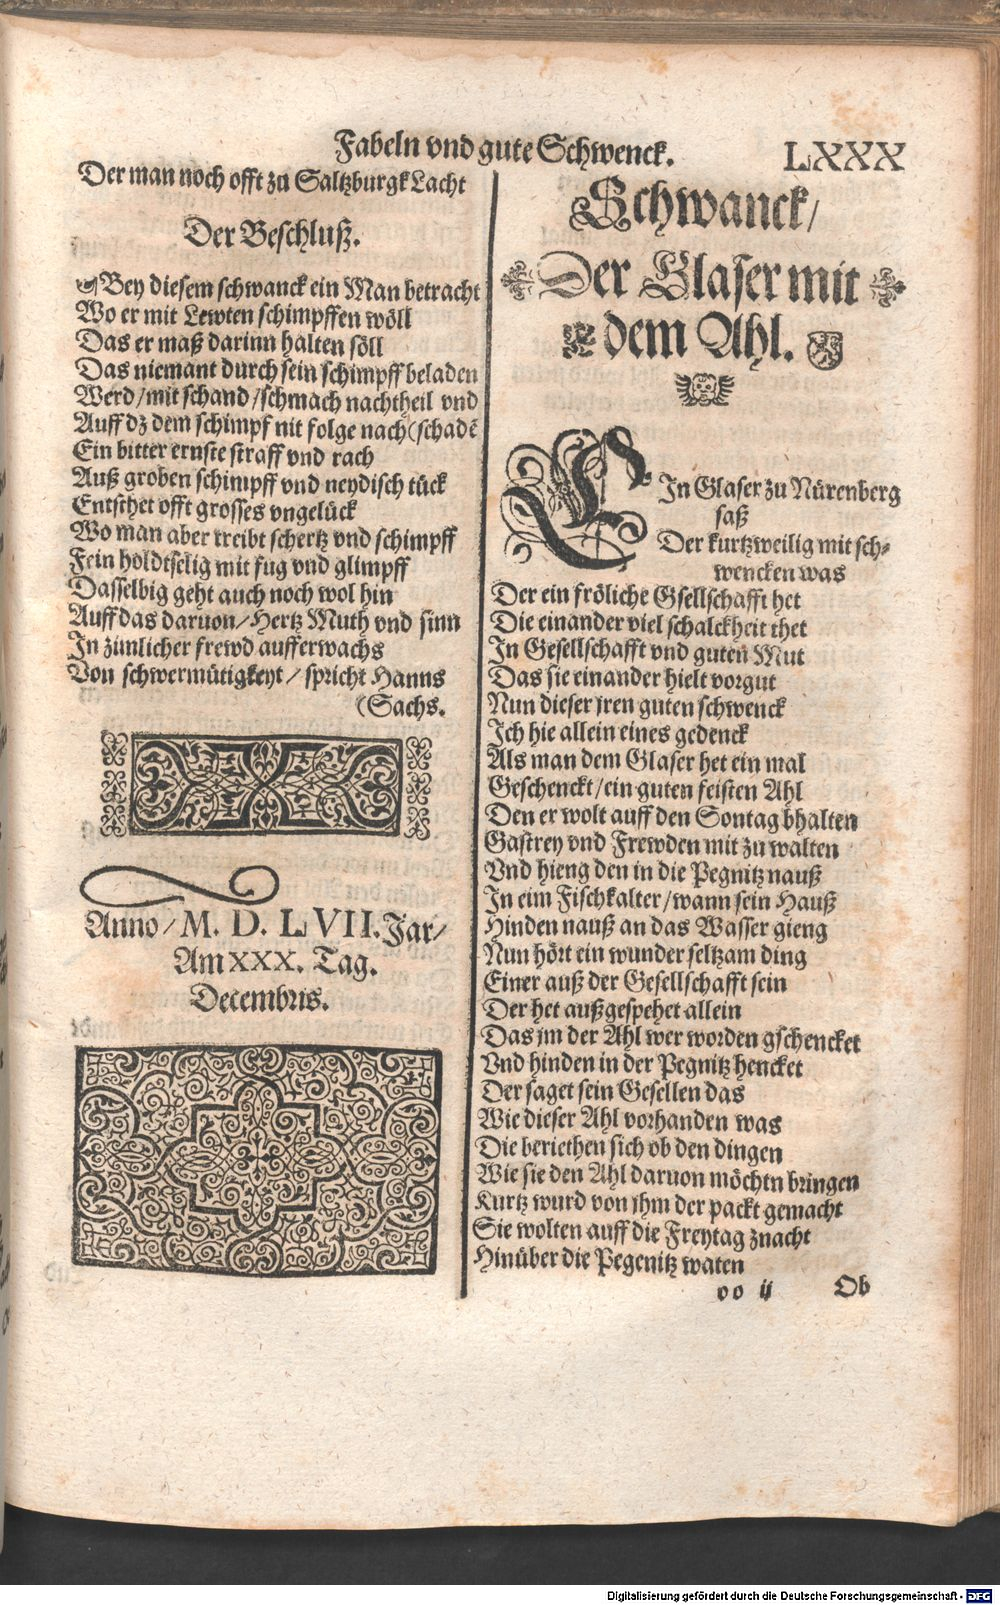 Fabeln vnd gute Schwenck.
LXXX
Der man noch offt zu Saltzburgk Lacht
Der Beschluß.
Bey diesem schwanck ein Man betracht
Wo er mit Lewten schimpffen wöll
Das er maß darinn halten söll
Das niemant durch sein schimpff beladen
Werd / mit schand / schmach nachtheil vnd
Auff dz dem schimpf nit folge nach (schadē
Ein bitter ernste straff vnd rach
Auß groben schimpff vnd neydisch tück
Entsthet offt grosses vngelück
Wo man aber treibt schertz vnd schimpff
Fein holdtselig mit fug vnd glimpff
Dasselbig geht auch noch wol hin
Auff das daruon / Hertz Muth vnd sinn
In zimlicher frewd aufferwachs
Von schwermütigkeyt / spricht Hanns
(Sachs.
Anno / M. D. LVII. Jar /
Am XXX. Tag.
Decembris.
Schwanck /
Der Glaser mit
dem Ahl.
EIn Glaser zu Nürenberg
saß
Der kurtzweilig mit sch-
wencken was
Der ein fröliche Gsellschafft het
Die einander viel schalckheit thet
In Gesellschafft vnd guten Mut
Das sie einander hielt vorgut
Nun dieser jren guten schwenck
Ich hie allein eines gedenck
Als man dem Glaser het ein mal
Geschenckt / ein guten feisten Ahl
Den er wolt auff den Sontag bhalten
Gastrey vnd Frewden mit zu walten
Vnd hieng den in die Pegnitz nauß
In eim Fischkalter / wann sein Hauß
Hinden nauß an das Wasser gieng
Nun hört ein wunder seltzam ding
Einer auß der Gesellschafft sein
Der het außgespehet allein
Das jm der Ahl wer worden gschencket
Vnd hinden in der Pegnitz hencket
Der saget sein Gesellen das
Wie dieser Ahl vorhanden was
Die beriethen sich ob den dingen
Wie sie den Ahl daruon möchtn bringen
Kurtz wurd von jhm der packt gemacht
Sie wolten auff die Freytag znacht
Hinüber die Pegenitz waten
oo ij
Ob
Digitalisierung gefördert durch die Deutsche Forschungsgemeinschaft - DFG